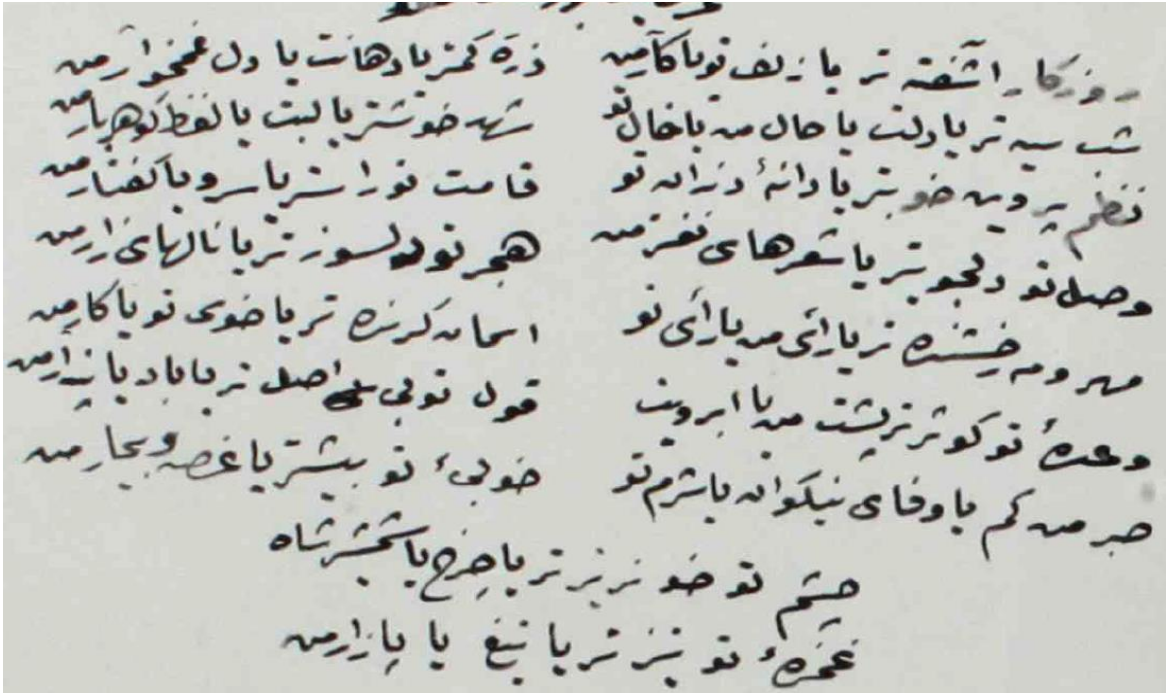 روزگار آشفته تر یا زلف تو یا کار من
ذره کمتر یا دهانت یا دل غمخوار من
شب سیه تر یا دلت یا حال من یا خال تو
شهد خوشتر یا لبت یا لفظ گوهر بار من
نظم پروین خوبتر یا دانهٔ دندان تو
قامت تو راستر یا سرو یا گفتار من
وصل تو دلجوتر یا شعرهای نغز من
هجر تو دلسوزتر یا نالهای زار من
مهر و مه رخشنده تر یا رای من یا رای تو
اسمان گردنده تر یا خوی تو یا کار من
وعدهٔ تو کوژتر یا پشت من یا ابرویت
قول تو بی اصل تر یا باد یا من
صبر من کم یا وفای نیکوان یا شرم تو
خوبیٔ تو بیشتر یا غصه و من
چشم تو خونریز تر یا چرخ یا شمشیر شاه
غمزهٔ تو تیز تر یا تیغ یا بازار من